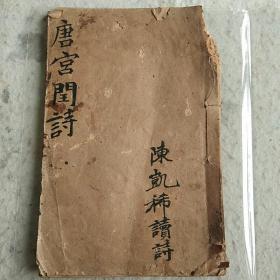 唐宮閨詩
陳凱稀讀詩